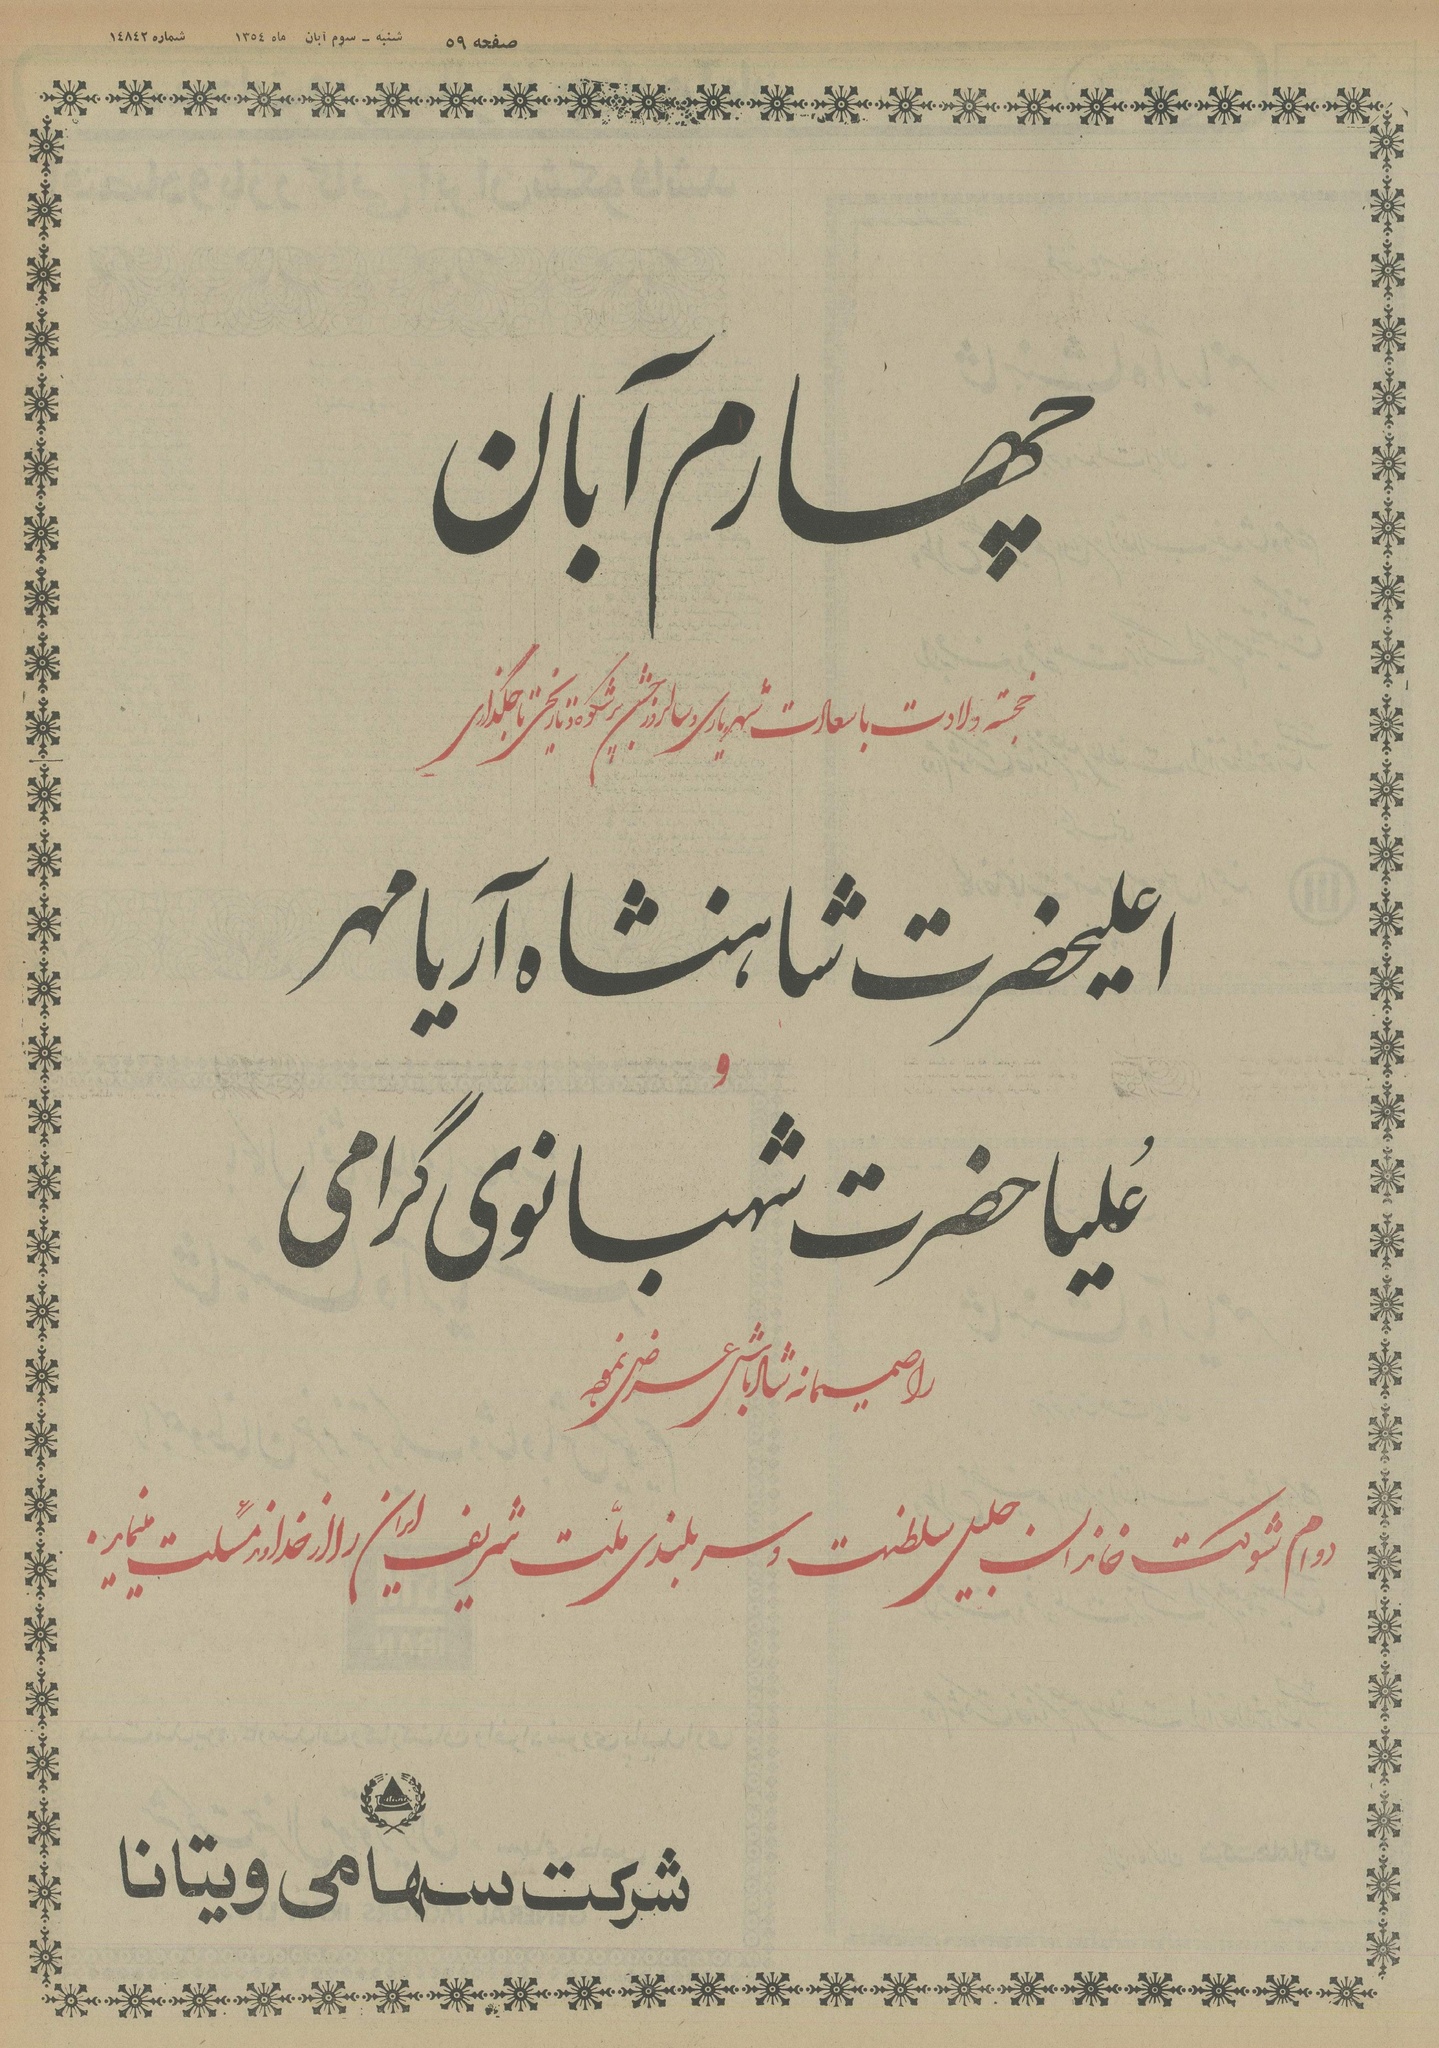 صفحه ۵۹ شنبه ـ سوم آبان ماه ۱۳۵٤ شماره ۱٤۸٤۲
چهارم آبان
خجسته ولادت با سعادت شهریاری و سالروز جشن پرشکوه و تاریخی تاجگذاری
اعلیحضرت شاهنشاه آریامهر
و
عُلیا حضرت شهبانوی گرامی
را صمیمانه شادباش عرض نموده
دوام شوکت خاندان جلیل سلطنت و سربلندی ملّت شریف ایران را از خداوند مسئلت مینماید.
شرکت سهامی ویتانا